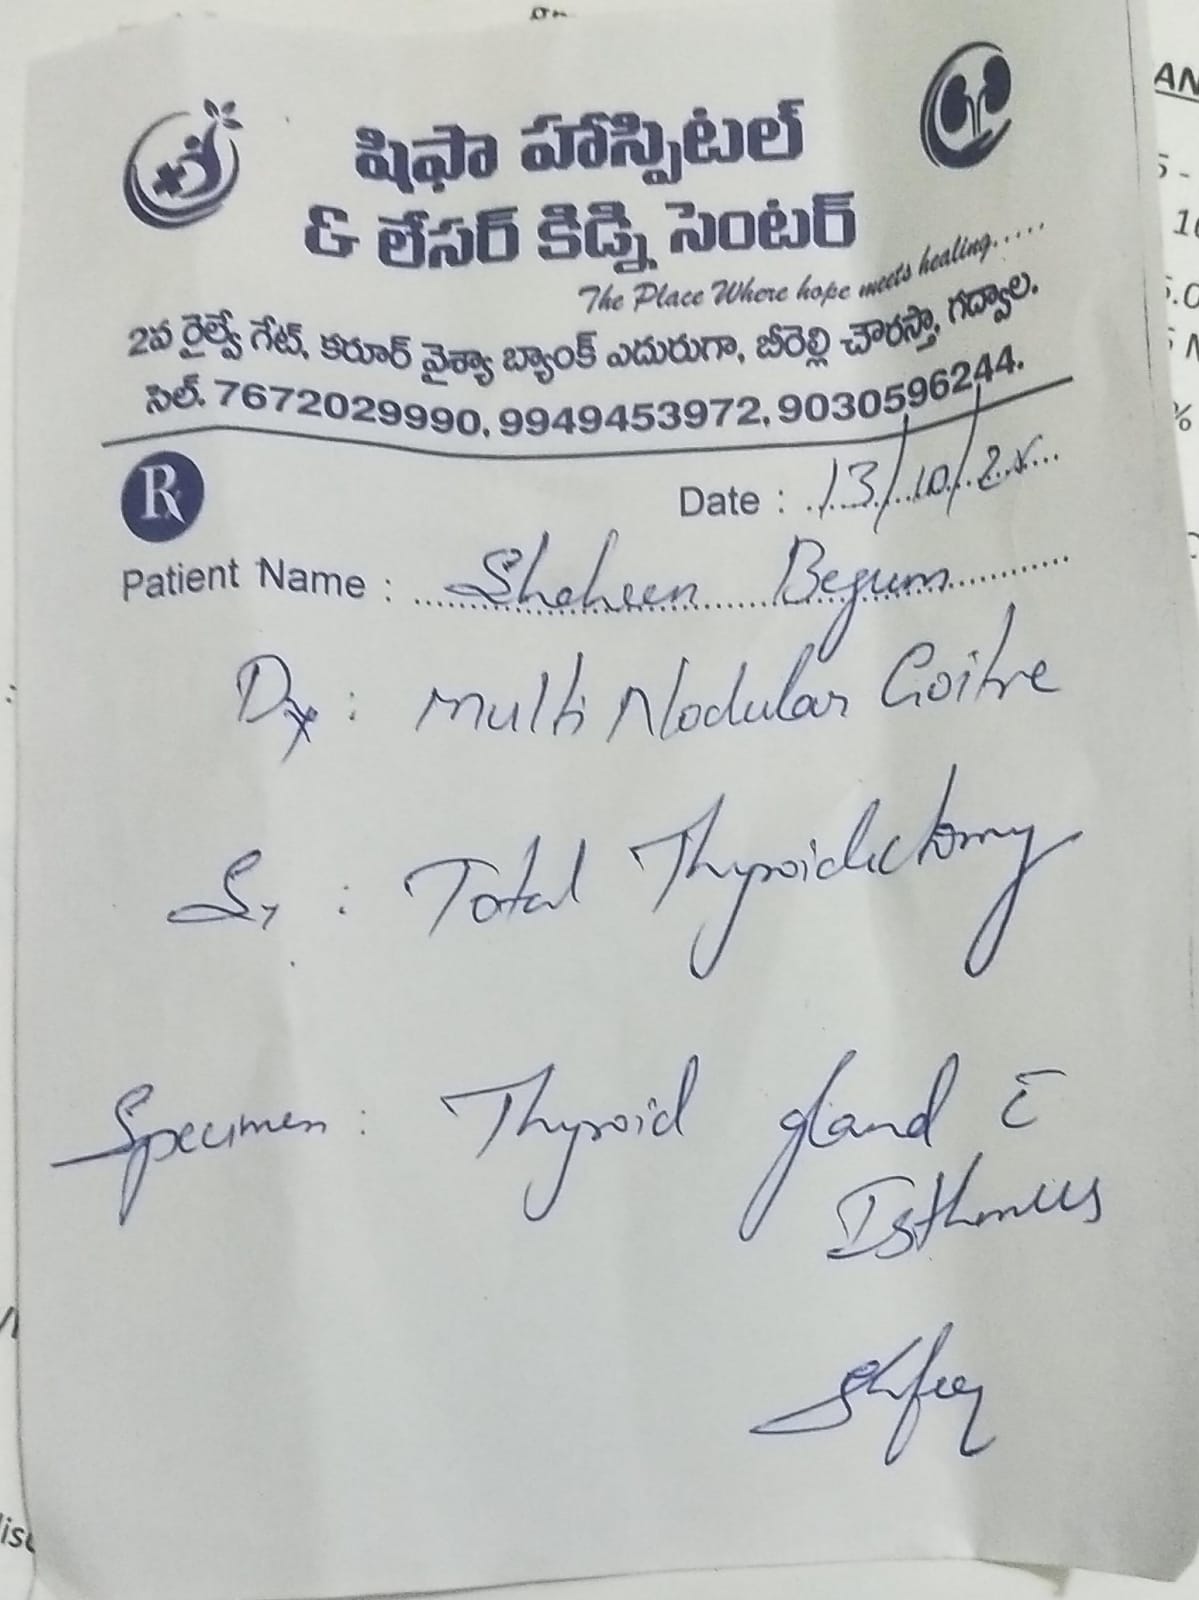 షిఫా హాస్పిటల్
& లేసర్ కిడ్ని సెంటర్
The Place Where hope meets healing.....
2వ రైల్వే గేట్, కరూర్ వైశ్యా బ్యాంక్ ఎదురుగా, బీరెల్లి చౌరస్తా, గద్వాల.
సెల్. 7672029990, 9949453972, 9030596244.
Rx
Date : 13/10/25
Patient Name : Shaheen Begum
Dx : Multi Nodular Goitre
Sx : Total Thyroidectomy
Specimen : Thyroid gland c̄
Isthmus
AN